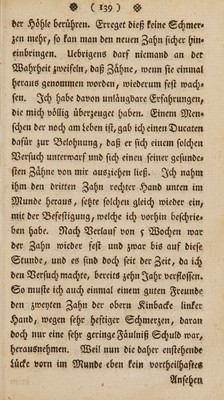 ❀ ( 139 ) ❀
der Höhle berühren. Erreget dieß keine Schmer-
zen mehr, so kan man den neuen Zahn sicher hin-
einbringen. Uebrigens darf niemand an der
Wahrheit zweifeln, daß Zähne, wenn sie einmal
heraus genommen worden, wiederum fest wach-
sen. Ich habe davon unläugbare Erfahrungen,
die mich völlig überzeuget haben. Einem Men-
schen der noch am Leben ist, gab ich einen Ducaten
dafür zur Belohnung, daß er sich einem solchen
Versuch unterwarf und sich einen seiner gesunde-
sten Zähne von mir ausziehen ließ. Ich nahm
ihm den dritten Zahn rechter Hand unten im
Munde heraus, setzte solchen gleich wieder ein,
mit der Befestigung, welche ich vorhin beschrie-
ben habe. Nach Verlauf von 5 Wochen war
der Zahn wieder fest und zwar bis auf diese
Stunde, und es sind doch seit der Zeit, da ich
den Versuch machte, bereits zehn Jahr verflossen.
So muste ich auch einmal einem guten Freunde
den zweyten Zahn der obern Kinbacke linker
Hand, wegen sehr heftiger Schmerzen, daran
doch nur eine sehr geringe Fäulniß Schuld war,
herausnehmen. Weil nun die daher enstehende
Lücke vorn im Munde eben kein vortheilhaftes
Ansehen